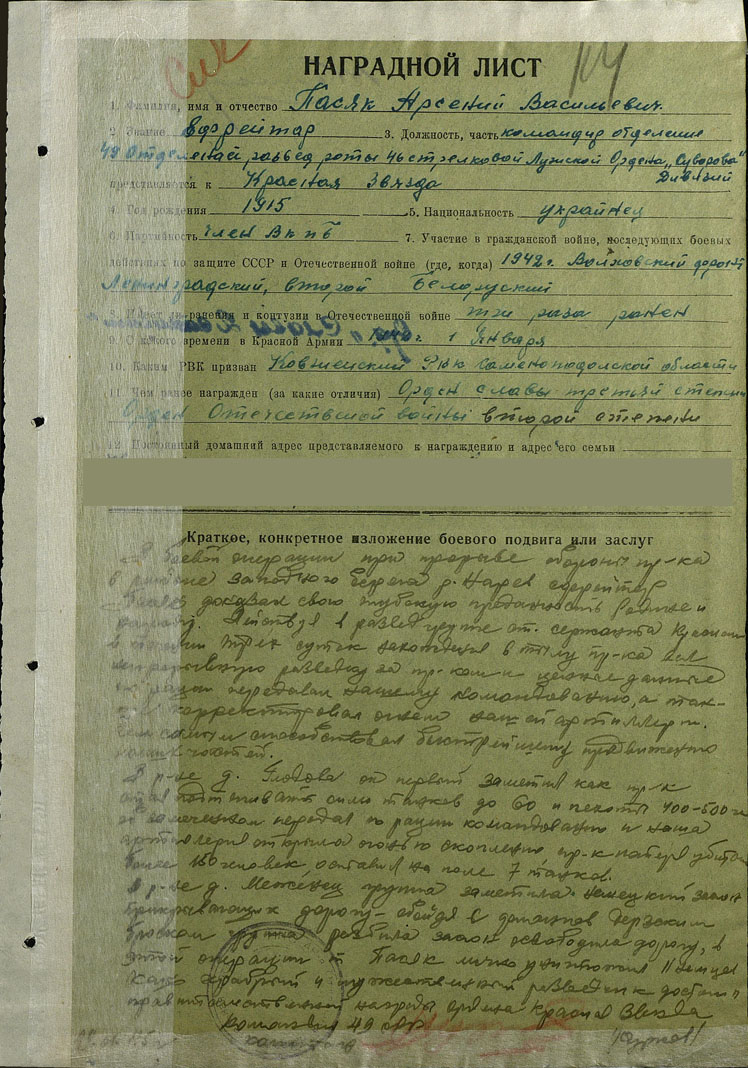 НАГРАДНОЙ ЛИСТ
1. Фамилия, имя и отчество Пасяк Арсений Васильевич
2. Звание Ефрейтор 3. Должность, часть командир отделение
49 Отдельной развед роты 46 стрелковой Лужской Ордена „Суворова"
Дивизий
представляется к Красная Звезда
4. Год рождения 1915 5. Национальность украинец
6. Партийность член ВКПБ 7. Участие в гражданской войне, последующих боевых
действиях по защите СССР и Отечественной войне (где, когда) 1942 г. Волховский
Ленинградский, второй Белоруский
8. Имеет ли ранения и контузии в Отечественной войне три раза ранен
9. С какого времени в Красной Армии 1 Января
10. Каким РВК призван РВК Каменоподолской области
11. Чем ранее награжден (за какие отличия) Орден славы третьй степени
Орден Отечественой войны второй степени
12. Постоянный домашний адрес представляемого к награждению и адрес его семьи
Краткое, конкретное изложение боевого подвига или заслуг
В боевой операции при прорыве обороны пр-ка
в районе западного берега р. Нарев ефрейтор
Пасяк доказал свою глубокую преданность Родине и
Действуя в разведгруппе от. сержанта
в течении трех суток находился в тылу пр-ка
непрерывную разведку за пр-ком и ценные данные
по рации передавал нашему командованию, а так-
же корректировал огнем нашей артиллерии.
Тем самым способствовал быстрейшему продвижению
наших частей.
В р-не д. он первый заметил как пр-к
стал подтягивать силы танков до 60 и пехоты 400-500
о замеченном передал по рации командованию и наша
артиллерия открыла огонь по скоплению пр-к потерял убитыми
более 150 человек, оставил на поле 7 танков.
В р-не д. Меженец группа заметила немецкий заслон
прикрывающих дорогу - обойдя с дерзким
броском группа разбила заслон освободила дорогу, в
этой операции Пасяк лично уничтожил 11 немцев
Как храбрый и мужественный разведчик достоин
правительственной награды ордена Красная Звезда
Командир 49 ОРР
капитан